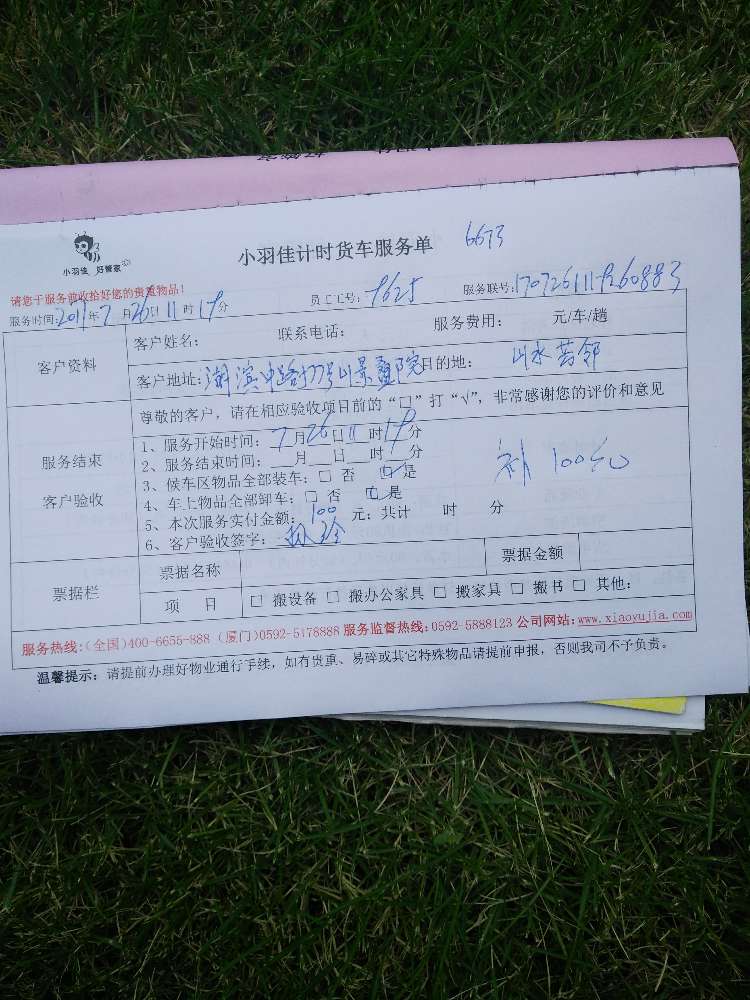 小羽佳计时货车服务单 6673
小羽佳 好管家
请您于服务前收拾好您的贵重物品!
服务时间:2017年7月26日11时19分 员工工号: 服务联号:
客户资料
客户姓名: 联系电话: 服务费用: 元/车/趟
客户地址:湖滨中路 目的地: 山水芳邻
服务结束
客户验收
尊敬的客户,请在相应验收项目前的“□”打“√”,非常感谢您的评价和意见
1、服务开始时间:7月26日11时19分
2、服务结束时间:__月__日__时__分
3、候车区物品全部装车:□ 否 □ 是
4、车上物品全部卸车:□ 否 □ 是
补 100元
5、本次服务实付金额:100 元;共计 时 分
6、客户验收签字:
票据栏
票据名称 票据金额
项 目 □ 搬设备 □ 搬办公家具 □ 搬家具 □ 搬书 □ 其他:
服务热线:(全国)400-6655-888 (厦门)0592-5178888 服务监督热线:0592-5888123 公司网站:www.xiaoyujia.com
温馨提示:请提前办理好物业通行手续,如有贵重、易碎或其它特殊物品请提前申报,否则我司不予负责。